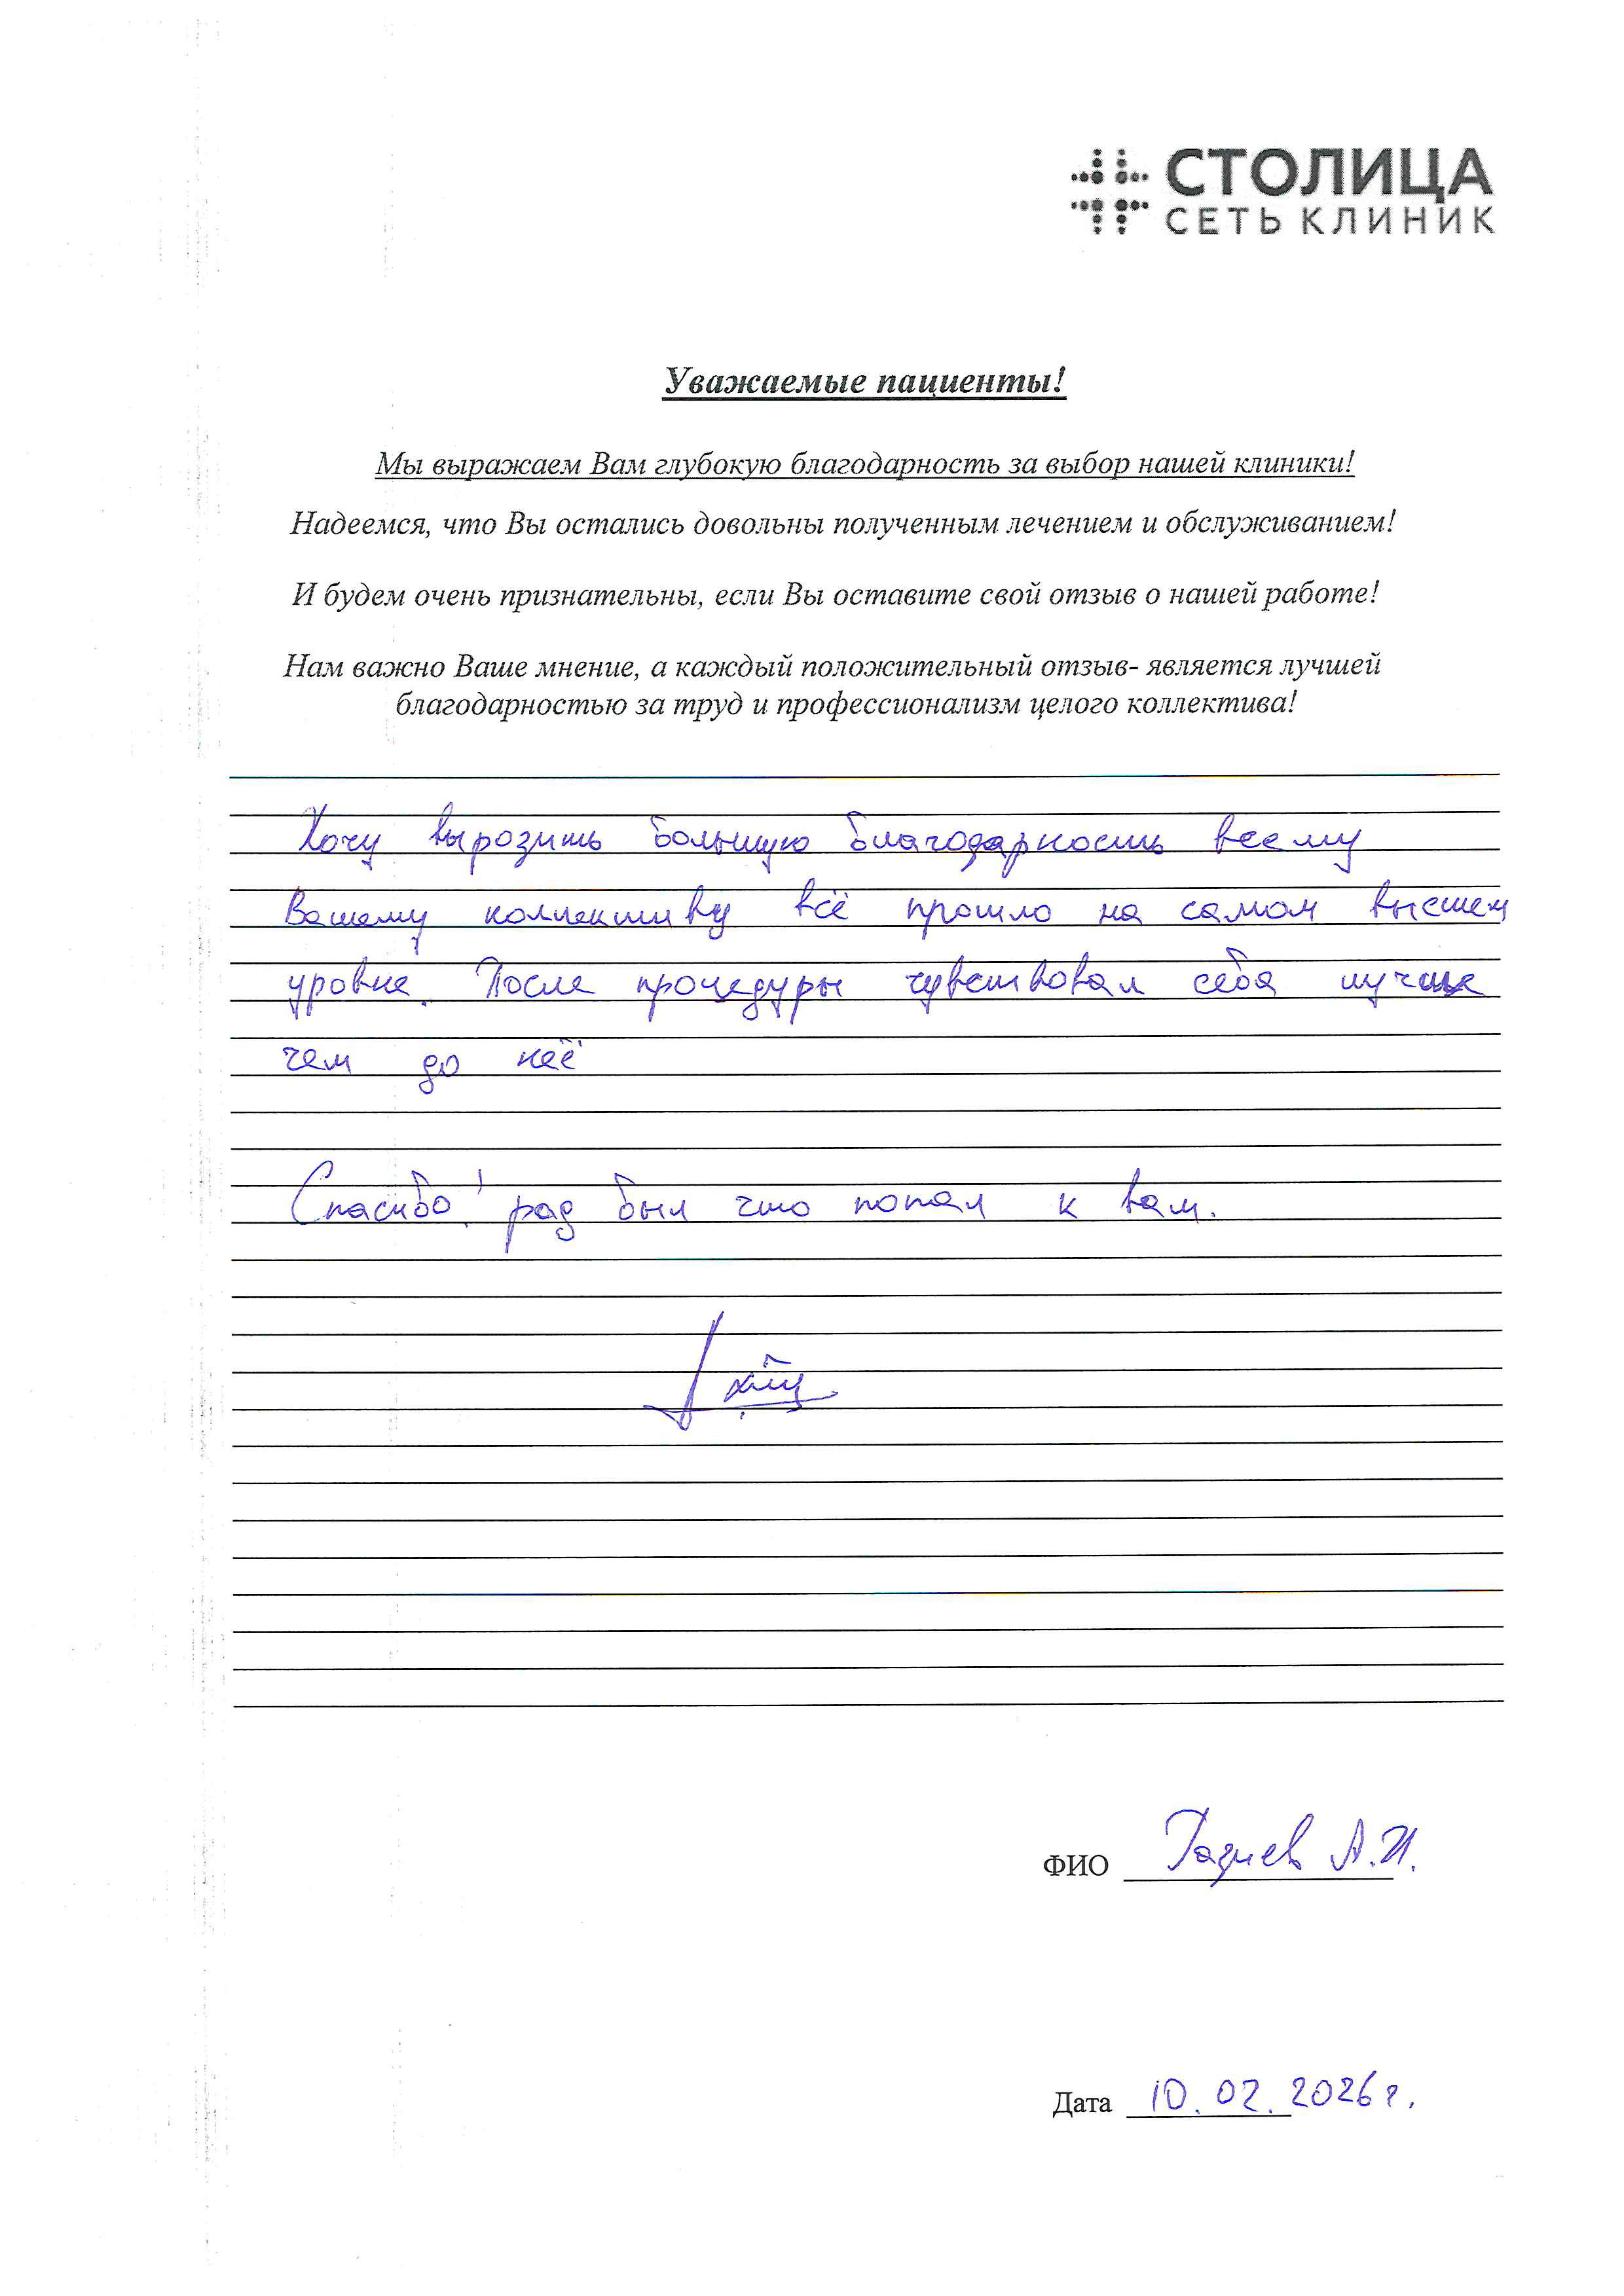 СТОЛИЦА
СЕТЬ КЛИНИК
Уважаемые пациенты!
Мы выражаем Вам глубокую благодарность за выбор нашей клиники!
Надеемся, что Вы остались довольны полученным лечением и обслуживанием!
И будем очень признательны, если Вы оставите свой отзыв о нашей работе!
Нам важно Ваше мнение, а каждый положительный отзыв- является лучшей
благодарностью за труд и профессионализм целого коллектива!
Хочу вырозить большую благодарность всему
Вашему коллективу всё прошло на самом высшем
уровне. После процедуры чувствовал себя лучше
чем до неё
Спасибо! рад был что попал к вам.
ФИО А.И.
Дата 10.02.2026 г.